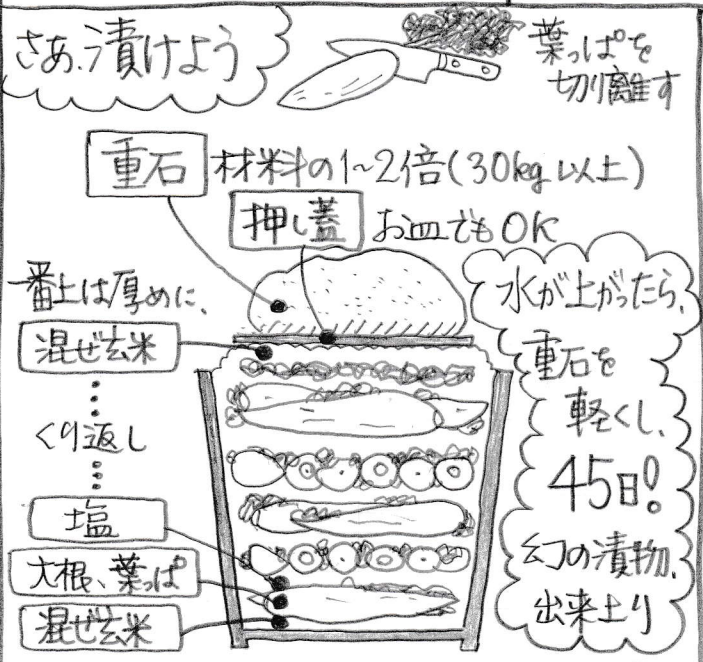 さあ、漬けよう
葉っぱを
切離す
重石 材料の1~2倍(30kg以上)
押し蓋 お皿でもOK
一番上は厚めに、
混ぜ玄米
くり返し
塩
大根、葉っぱ
混ぜ玄米
水が上がったら、
重石を
軽くし、
45日!
幻の漬物、
出来上り